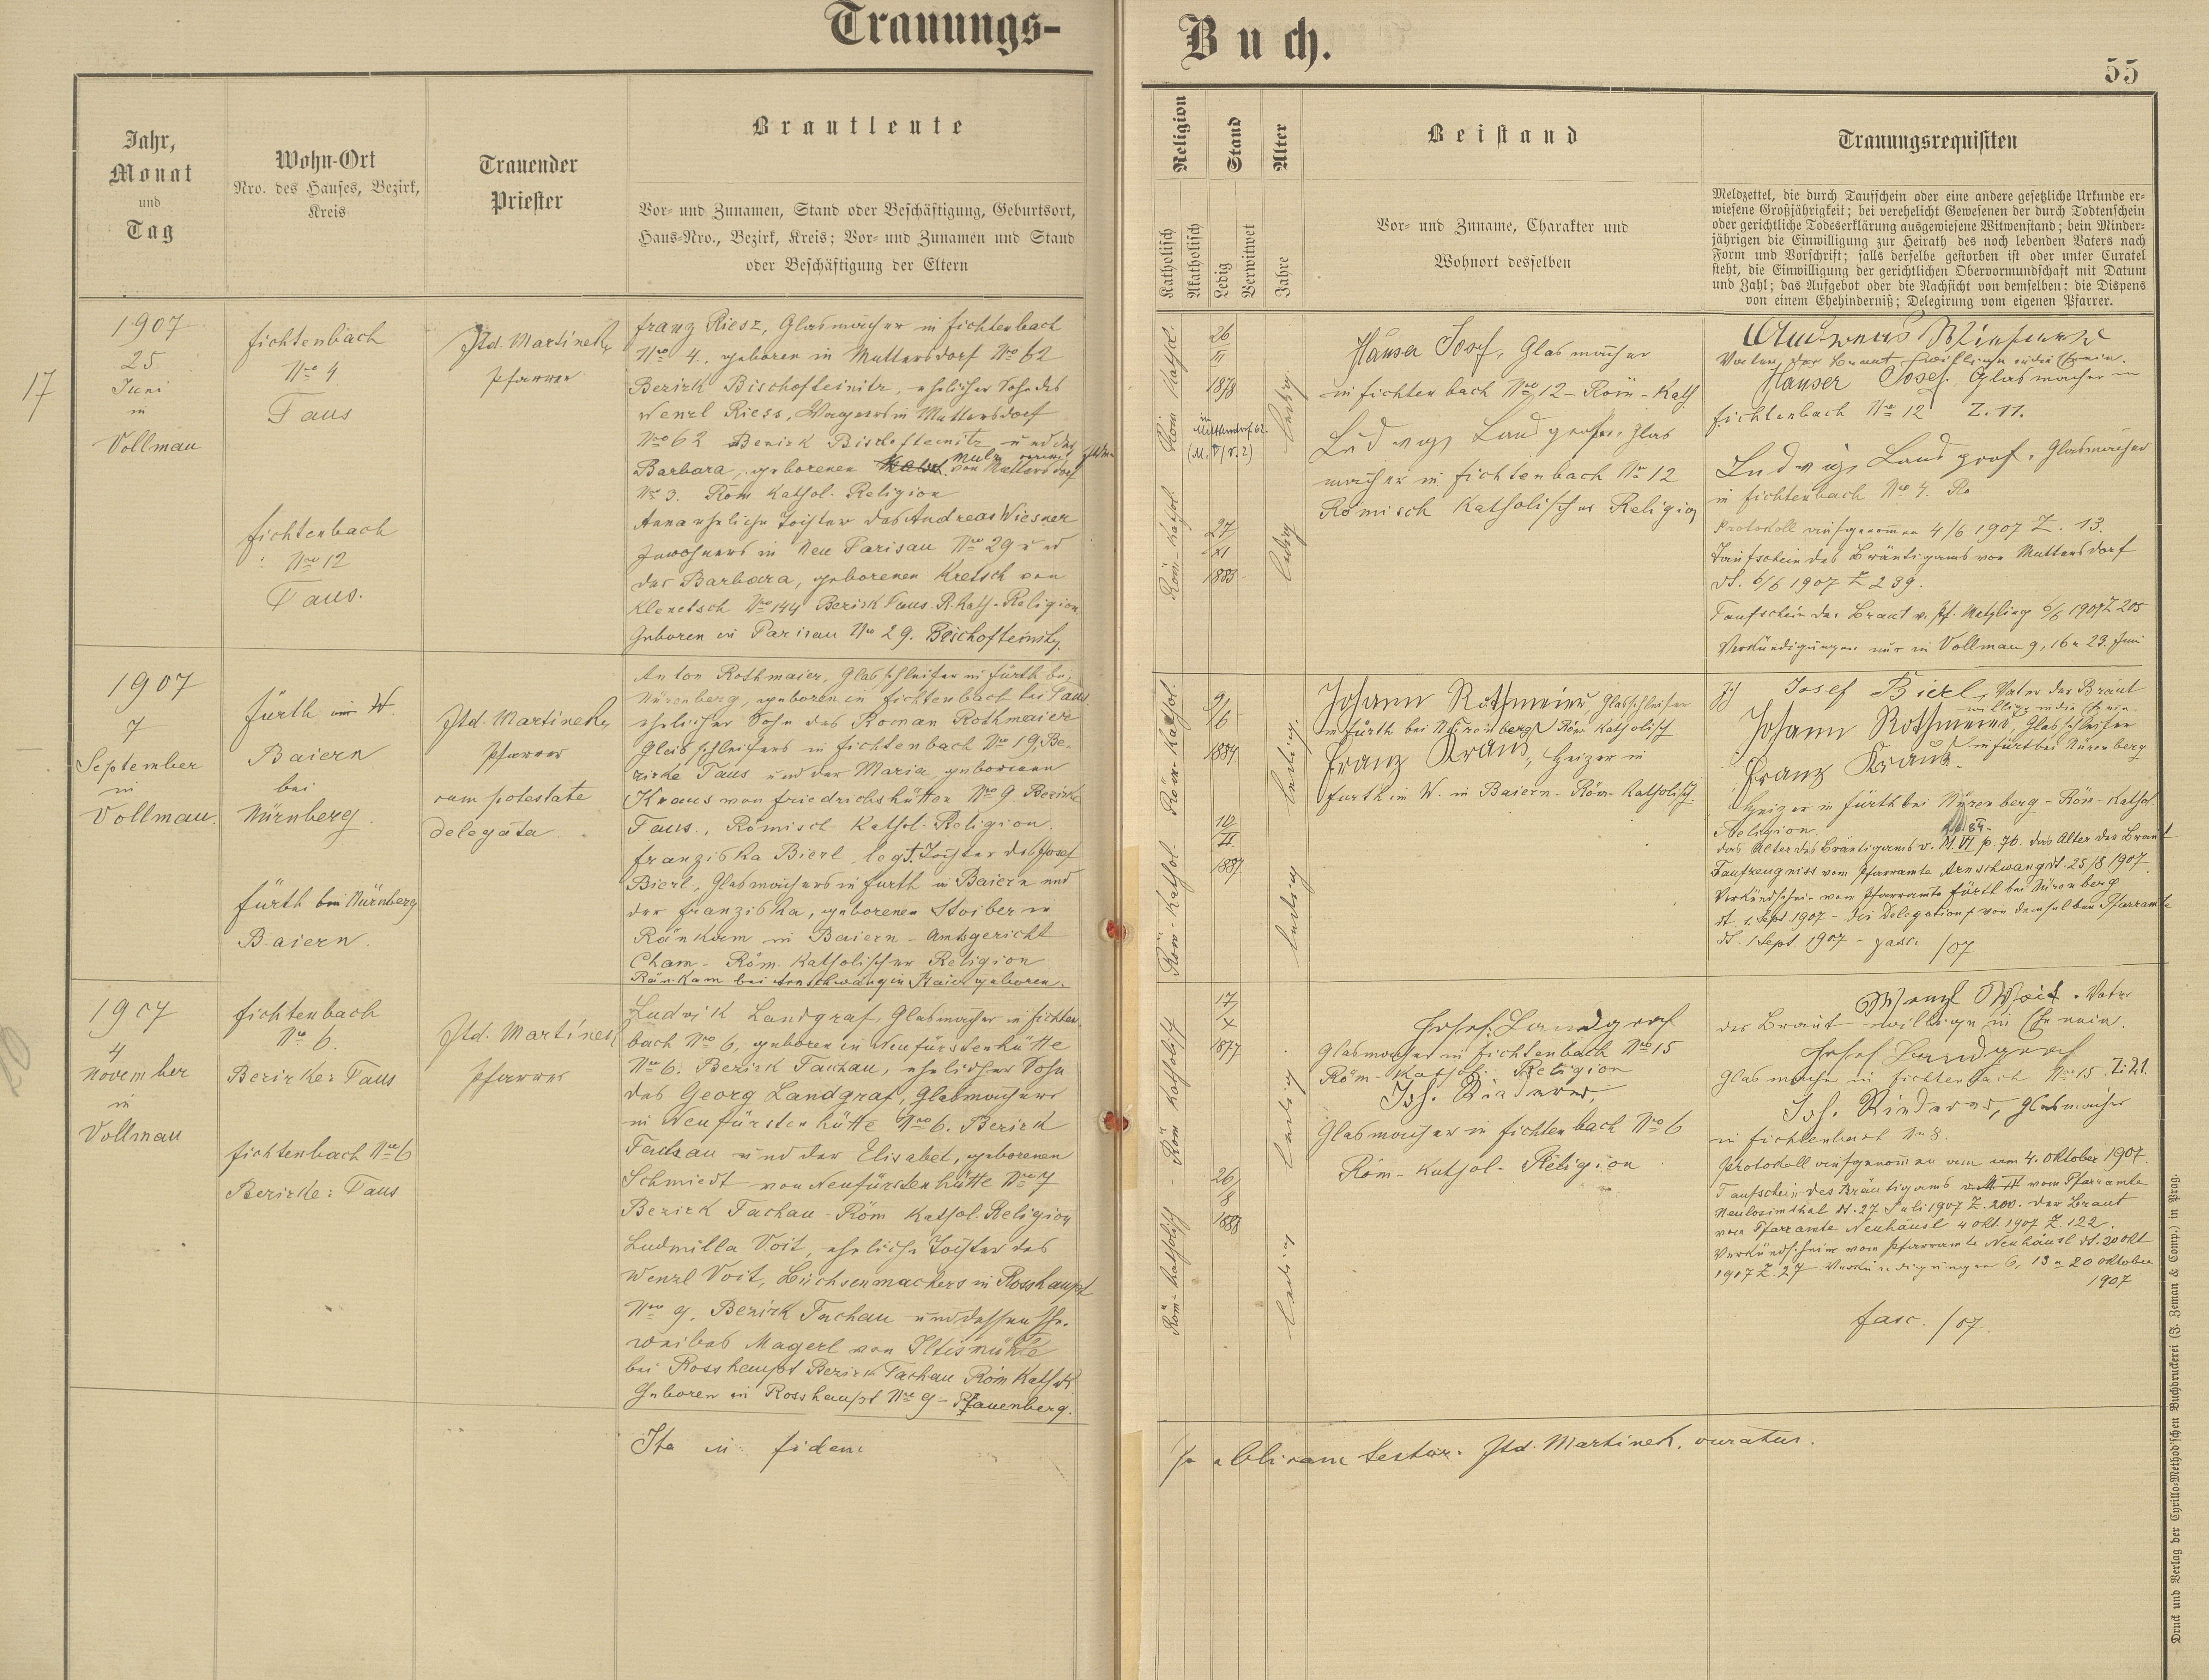 Trauungs-
Buch.
55
Jahr,
Monat
und
Tag
Wohn-Ort
Nro. des Hauses, Bezirk,
Kreis
Trauender
Priester
Brautleute
Vor- und Zunamen, Stand oder Beschäftigung, Geburtsort,
Haus-Nro., Bezirk, Kreis; Vor- und Zunamen und Stand
oder Beschäftigung der Eltern
Religion
Katholisch
Akatholisch
Stand
Ledig
Verwitwet
Alter
Jahre
Beistand
Vor- und Zuname, Charakter und
Wohnort desselben
Trauungsrequisiten
Meldzettel, die durch Taufschein oder eine andere gesetzliche Urkunde er-
wiesene Großjährigkeit; bei verehelicht Gewesenen der durch Todtenschein
oder gerichtliche Todeserklärung ausgewiesene Witwenstand; beim Minder-
jährigen die Einwilligung zur Heirath des noch lebenden Vaters nach
Form und Vorschrift; falls derselbe gestorben ist oder unter Curatel
steht, die Einwilligung der gerichtlichen Obervormundschaft mit Datum
und Zahl; das Aufgebot oder die Nachsicht von demselben; die Dispens
von einem Ehehinderniß; Delegirung vom eigenen Pfarrer.
17
1907
25
Juni
in
Vollmau
Fichtenbach
Nro 4
Taus
Fichtenbach
Nro 12
Taus.
Jtd. Martinek,
Pfarrer.
Franz Riesz, Glasmacher in Fichtenbach
Nro 4, geboren in Muttersdorf Nro 62
Bezirk Bischofteinitz, ehelicher Sohn des
Wenzl Riess, Wagners in Muttersdorf
Nro 62 Bezirk Bischofteinitz und der
Barbara, geborenen von Muttersdorf
Nro 3. Röm Kathol. Religion
Anna eheliche Tochter des Andreas Wiesner
Inwohners in Neu Parisau Nro 29 und
der Barbara, geborenen Kretsch von
Klenetsch Nro 144 Bezirk Taus. R. Kath. Religion
Geboren in Parisau Nro 29. Bischofteinitz.
Röm Kathol.
Röm-Kathol.
26
III
1878
in
Muttersdorf 62.
27
XI
1883
ledig.
ledig
Hauser Josef, Glasmacher
in Fichtenbach Nro 12 - Röm-Kath
Ludwig Landgraf, Glas
macher in Fichtenbach Nro 12
Römisch Katholischer Religion
Vater der Braut
Hauser Josef. Glasmacher in
Fichtenbach Nro 12 Z. 11.
Ludwig Landgraf, Glasmacher
in Fichtenbach Nro 4. Rö
Protokoll aufgenommen 4/6 1907 Z. 13.
Taufschein des Bräutigams von Muttersdorf
dt. 6/6 1907 Z 239.
Taufschein der Braut v. Pf. Metzling 6/6 1907 Z 205
Verkündigungen nur in Vollmau 9, 16 u 23. Juni
1907
7
September
in
Vollmau.
Fürth im W.
Baiern
bei
Nürnberg.
Fürth bei Nürnberg
Baiern.
Jtd. Martinek,
Pfarrer
cum potestate
delegata.
Anton Rothmaier, Glasschleifer in Fürth bei
Nürenberg, geboren in Fichtenbach bei Taus
ehelicher Sohn des Roman Rothmaier
Glasschleifers in Fichtenbach Nro 19, Be-
zirke Taus und der Maria geborenen
Kraus von Friedrichshütten Nro 9. Bezirke
Taus., Römisch-Kathol-Religion.
Franziska Bierl, legt. Tochter des Josef
Bierl, Glasmachers in Furth in Baiern und
der Franziska, geborenen Stoiber in
Ränkam in Baiern - Amtsgericht
Cham - Röm. Katholischer Religion
Ränkam bei Arnschwang in Baiern geboren.
Röm-Kathol.
Röm-Kathol.
9/
6
1884
10/
II
1887
ledig.
ledig
Johann Rothmeier, Glasschleifer
in Fürth bei Nürenberg Röm Katholisch
Franz Kraus, Heizer in
Furth im W. in Baiern - Röm-Katholisch.
Josef Bierl, Vater der Braut
willige in die Ehe ein.
Johann Rothmeier Glasschleifer
in Fürt bei Nürenberg
Franz Kraus.
Heizer in Fürth bei Nürenberg - Röm-Kathol.
Religion.
das Alter des Bräutigams v. M. VI p. 76. das Alter der Braut
Taufzeugniss vom Pfarramte Arnschwang dt. 25/8 1907.
Verkündschein vom Pfarramte Fürth bei Nürenberg
dt. 1. Sept 1907 - die Delegation von demselben Pfarramte
dt. 1 Sept. 1907 - fasc. /07
20
1907
4
November
in
Vollmau
Fichtenbach
Nro 6.
Bezirke: Taus
Fichtenbach Nro 6
Bezirke: Taus
Jtd. Martinek
Pfarrer
Ludwik Landgraf, Glasmacher in Fichten
bach Nro 6, geboren in Neufürstenhütte
Nro 6. Bezirk Tachau, ehelicher Sohn
des Georg Landgraf, Glasmachers
in Neufürstenhütte Nro 6. Bezirk
Tachau und der Elisabet, geborenen
Schmiedt von Neufürstenhütte Nro 7
Bezirk Tachau - Röm Kathol-Religion
Ludmilla Voit, eheliche Tochter des
Wenzl Voit, Büchsenmachers in Rosshaupt
Nro 9, Bezirk Tachau und dessen Ehe-
weibes Magerl von Iltismühle
bei Rosshaupt Bezirk Tachau Röm Kathol.
Geboren in Rosshaupt Nro 9 - Pfauenberg.
Röm Katholisch
Röm-Katholisch
17/
X
1877
26/
8
1888
ledig
ledig
Josef Landgraf
Glasmacher in Fichtenbach Nro 15
Röm-Kathol. Religion
Joh. Rinderer,
Glasmacher in Fichtenbach Nro 6
Röm-Kathol-Religion
Wenzl Woit. Vater
der Braut willige in Ehe ein.
Josef Landgraf
Glasmacher in Fichtenbach Nro 15. Z: 21.
Joh. Rinderer, Glasmacher
in Fichtenbach Nr 8.
Protokoll aufgenommen am 4. Oktober 1907.
Taufschein des Bräutigams vom Pfarramte
Neulosimthal dt. 27 Juli 1907 Z. 200. der Braut
vom Pfarramte Neuhäusl 4 Okt. 1907 Z. 122.
Verkündschein vom Pfarramte Neuhäusl dt. 20 Okt
1907 Z. 27 Verkündigungen 6, 13 u 20 Oktober
1907
fasc. /07.
Ita in fidem
Jtd. Martinek, curatus.
Druck und Verlag der Cyrillo-Method'schen Buchdruckerei (J. Zeman & Comp.) in Prag.